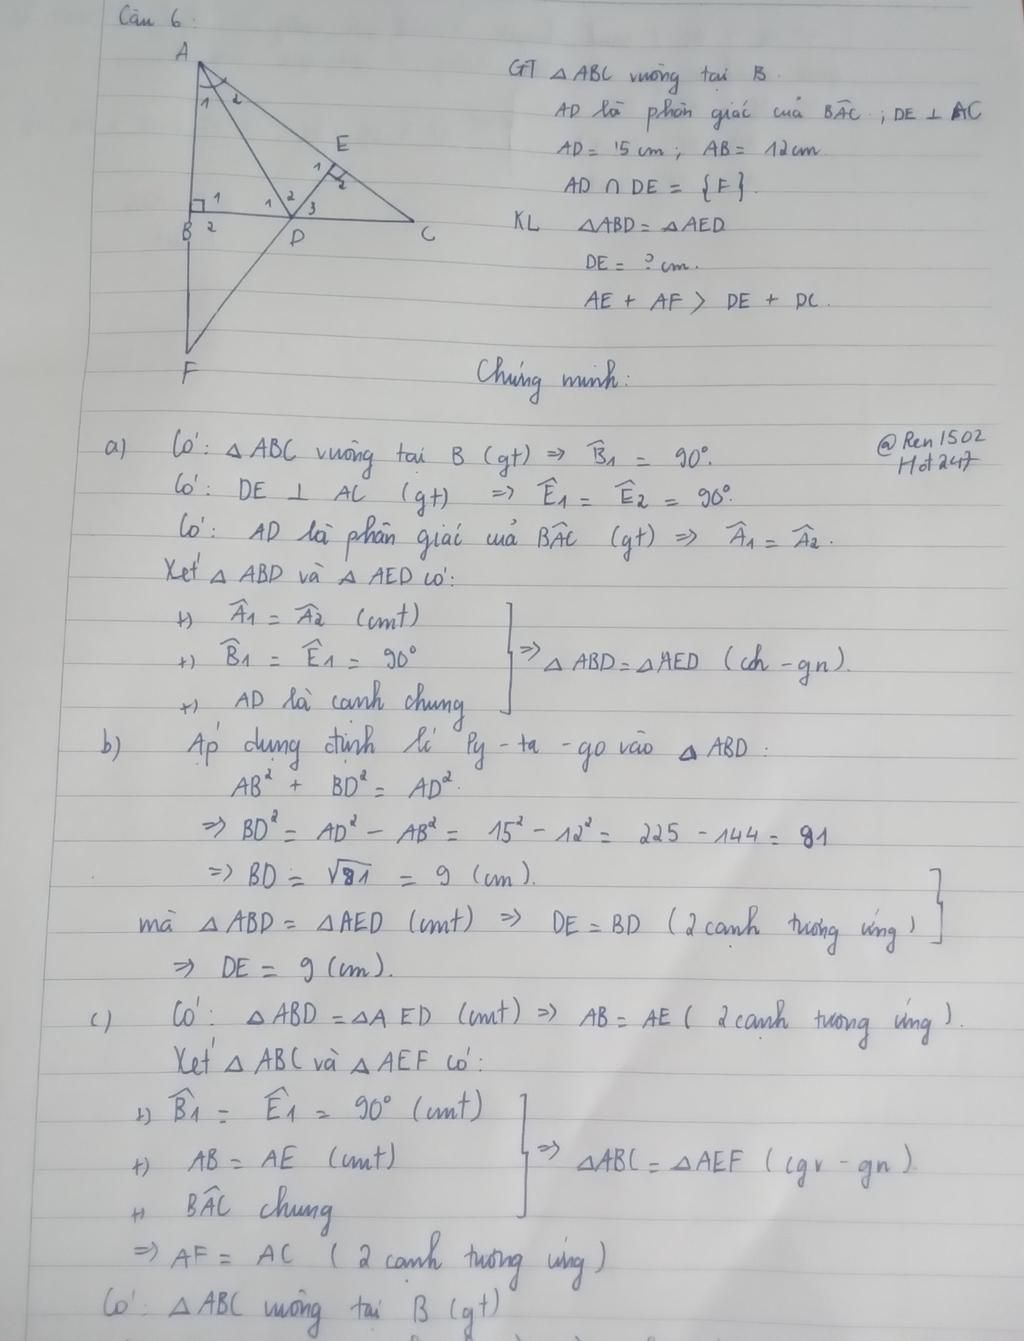 Câu 6:
A
1 2
E
1 2
1
2
1 2 3
B
D
C
F
GT △ABC vuông tại B.
AD là phân giác của BÂC; DE ⊥ AC
AD = 15cm; AB = 12cm
AD ∩ DE = {F}.
KL △ABD = △AED
DE = ? cm.
AE + AF > DE + DC.
Chứng minh:
@Ren1502
Hot247
a) Có: △ABC vuông tại B (gt) => B̂1 = 90°.
Có: DE ⊥ AC (gt) => Ê1 = Ê2 = 90°.
Có: AD là phân giác của BÂC (gt) => Â1 = Â2.
Xét △ABD và △AED có:
+) Â1 = Â2 (cmt)
+) B̂1 = Ê1 = 90°
+) AD là cạnh chung
=> △ABD = △AED (ch - gn).
b) Áp dụng định lí Py-ta-go vào △ABD:
AB² + BD² = AD².
=> BD² = AD² - AB² = 15² - 12² = 225 - 144 = 81
=> BD = √81 = 9 (cm).
mà △ABD = △AED (cmt) => DE = BD (2 cạnh tương ứng)
=> DE = 9 (cm).
c) Có: △ABD = △AED (cmt) => AB = AE (2 cạnh tương ứng).
Xét △ABC và △AEF có:
+) B̂1 = Ê1 = 90° (cmt)
+) AB = AE (cmt)
+) BÂC chung
=> △ABC = △AEF (cgv - gn).
=> AF = AC (2 cạnh tương ứng)
Có: △ABC vuông tại B (gt)